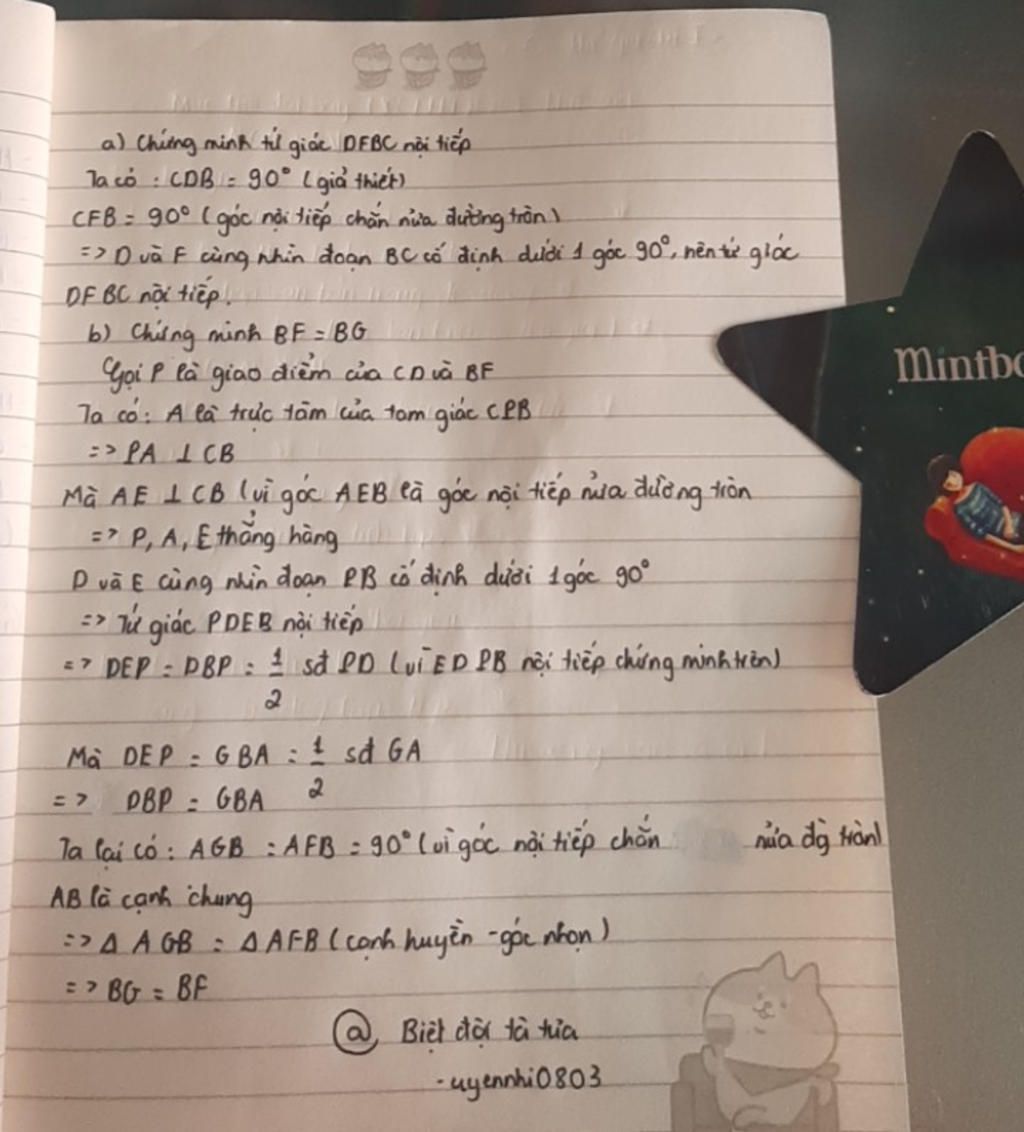 a) Chứng minh tứ giác DFBC nội tiếp
Ta có : CDB = 90° (giả thiết)
CFB = 90° (góc nội tiếp chắn nửa đường tròn)
=> D và F cùng nhìn đoạn BC cố định dưới 1 góc 90°, nên tứ giác
DFBC nội tiếp.
b) Chứng minh BF = BG
Gọi P là giao điểm của CD và BF
Ta có: A là trực tâm của tam giác CPB
=> PA ⊥ CB
Mà AE ⊥ CB (vì góc AEB là góc nội tiếp nửa đường tròn
=> P, A, E thẳng hàng
D và E cùng nhìn đoạn PB cố định dưới 1 góc 90°
=> Tứ giác PDEB nội tiếp
=> DEP = DBP = 1/2 sđ PD (vì EDPB nội tiếp chứng minh trên)
Mà DEP = GBA = 1/2 sđ GA
=> DBP = GBA
Ta lại có : AGB = AFB = 90° (vì góc nội tiếp chắn nửa đg tròn)
AB là cạnh chung
=> Δ AGB = Δ AFB (cạnh huyền - góc nhọn)
=> BG = BF
@ Biệt đội tà tưa
-uyennhi0803
Mintbo